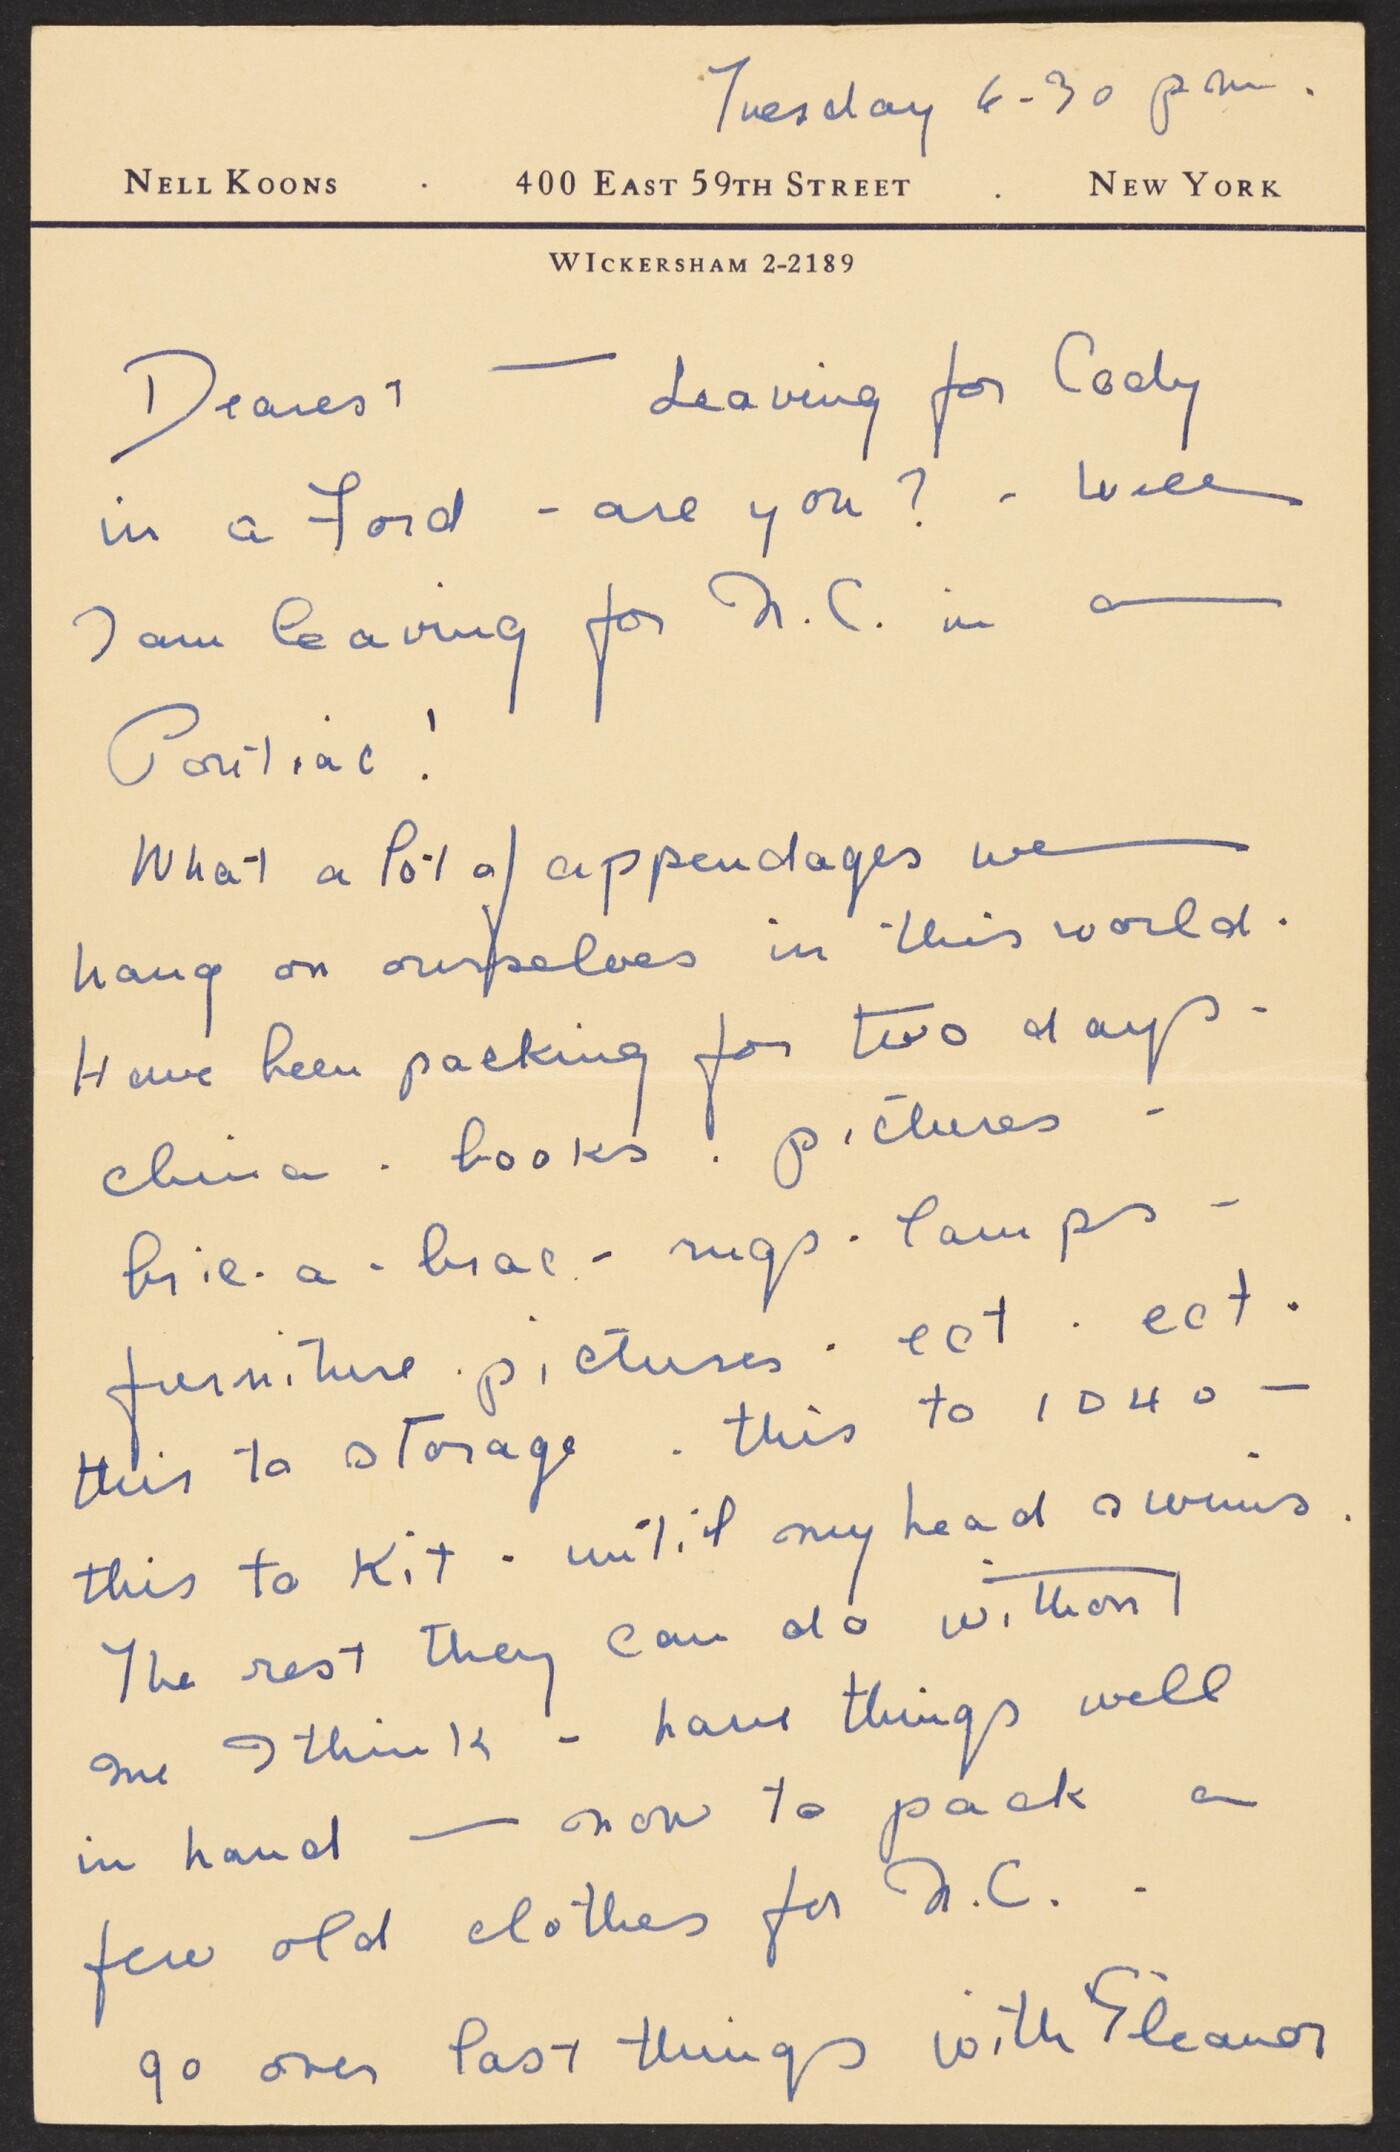 Tuesday 6-30 p m.
NELL KOONS . 400 EAST 59TH STREET . NEW YORK
WICKERSHAM 2-2189
Dearest — Leaving for Cody
in a Ford - are you? - Well
I am leaving for N.C. in a
Pontiac!
What a lot of appendages we
hang on ourselves in this world.
Have been packing for two days -
china . books . pictures -
bric. a - brac - rugs . lamps -
furniture . pictures . ect . ect .
this to storage . this to 1040 —
this to Kit . until my head swims .
The rest they can do without
me I think - have things well
in hand — now to pack a
few old clothes for N.C. .
go over last things with Eleanor